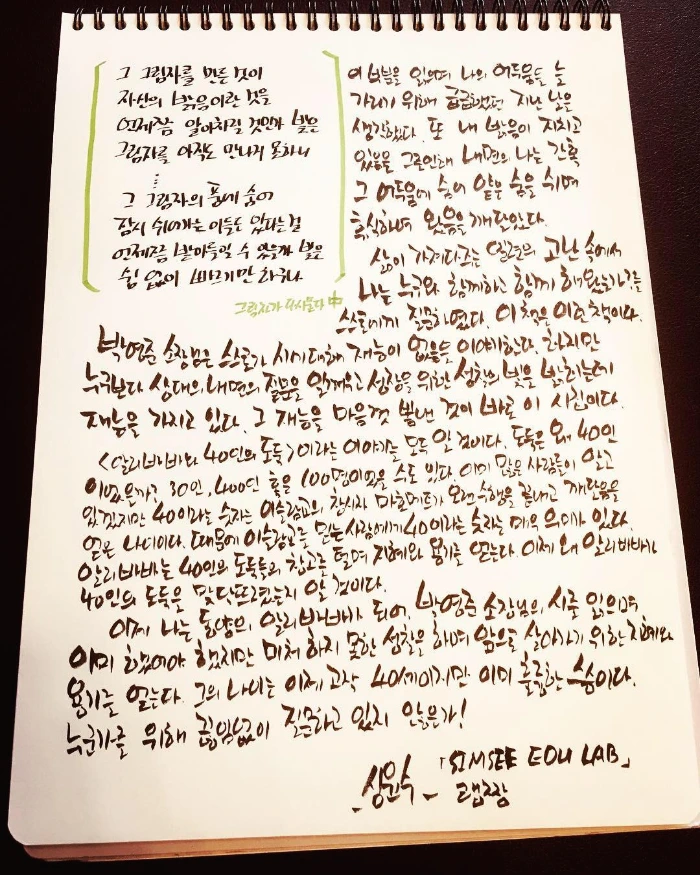 그 그림자를 만든 것이
자신의 밝음이란 것을
언제쯤 알아차릴 것인가 빛은
그림자를 아직도 만나지 못하니
⋮
그 그림자의 품에 숨어
잠시 쉬어가는 이들도 있다는 걸
언제쯤 받아들일 수 있을까 빛은
쉼 없이 빠르기만 하구나
그림자가 다시 묻다 中
이 부분을 읽으며 나의 어두움을 늘
가리기 위해 급급했던 지난 날을
생각했다. 또 내 밝음이 지치고
있음을 그로인해 내면의 나는 간혹
그 어두움에 숨어 얕은 숨을 쉬며
휴식하며 왔음을 깨달았다.
삶이 가져다주는 일련의 고난 속에서
나는 누구와 함께하고 함께 해왔는가?를
스스로에게 질문하였다. 이 책은 이런 책이다.
박영준 소장님은 스스로가 시에 대해 재능이 없음을 이야기한다. 하지만
누구보다 상대의 내면의 질문을 일깨우고 성장을 위한 성찰의 빛을 밝히는데
재능을 가지고 있다. 그 재능을 마음껏 뽐낸 것이 바로 이 시집이다.
<알리바바와 40인의 도둑>이라는 이야기를 모두 알 것이다. 도둑은 왜 40인
이었을까? 30인, 400인 혹은 100명이었을 수도 있다. 이미 많은 사람들이 알고
있겠지만 40이라는 숫자는 이슬람교의 창시자 마호메트가 오랜 수행을 끝내고 깨달음을
얻은 나이이다. 때문에 이슬람교를 믿는 사람에게 40이라는 숫자는 매우 의미가 있다.
알리바바는 40인의 도둑들의 창고를 털며 지혜와 용기를 얻는다. 이제 왜 알리바바가
40인의 도둑을 맞닥뜨렸는지 알 것이다.
이제 나는 동양의 알리바바가 되어, 박영준 소장님의 시를 읽으며
이미 했어야 했지만 미처 하지 못한 성찰을 하며 앞으로 살아가기 위한 지혜와
용기를 얻는다. 그의 나이는 이제 고작 40세이지만 이미 훌륭한 스승이다.
누군가를 위해 끊임없이 질문하고 있지 않은가!
「SIMSEE EDU LAB」
랩짱